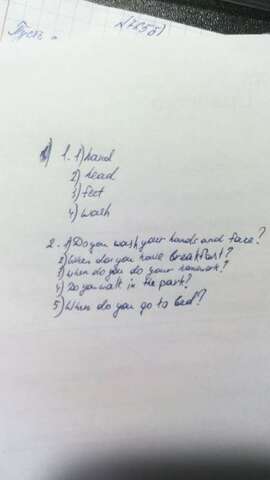 Пусть
1. 1) hand
2) head
3) feet
4) wash
2. 1) Do you wash your hands and face?
2) When do you have breakfast?
3) When do you do your homework?
4) Do you walk in the park?
5) When do you go to bed?